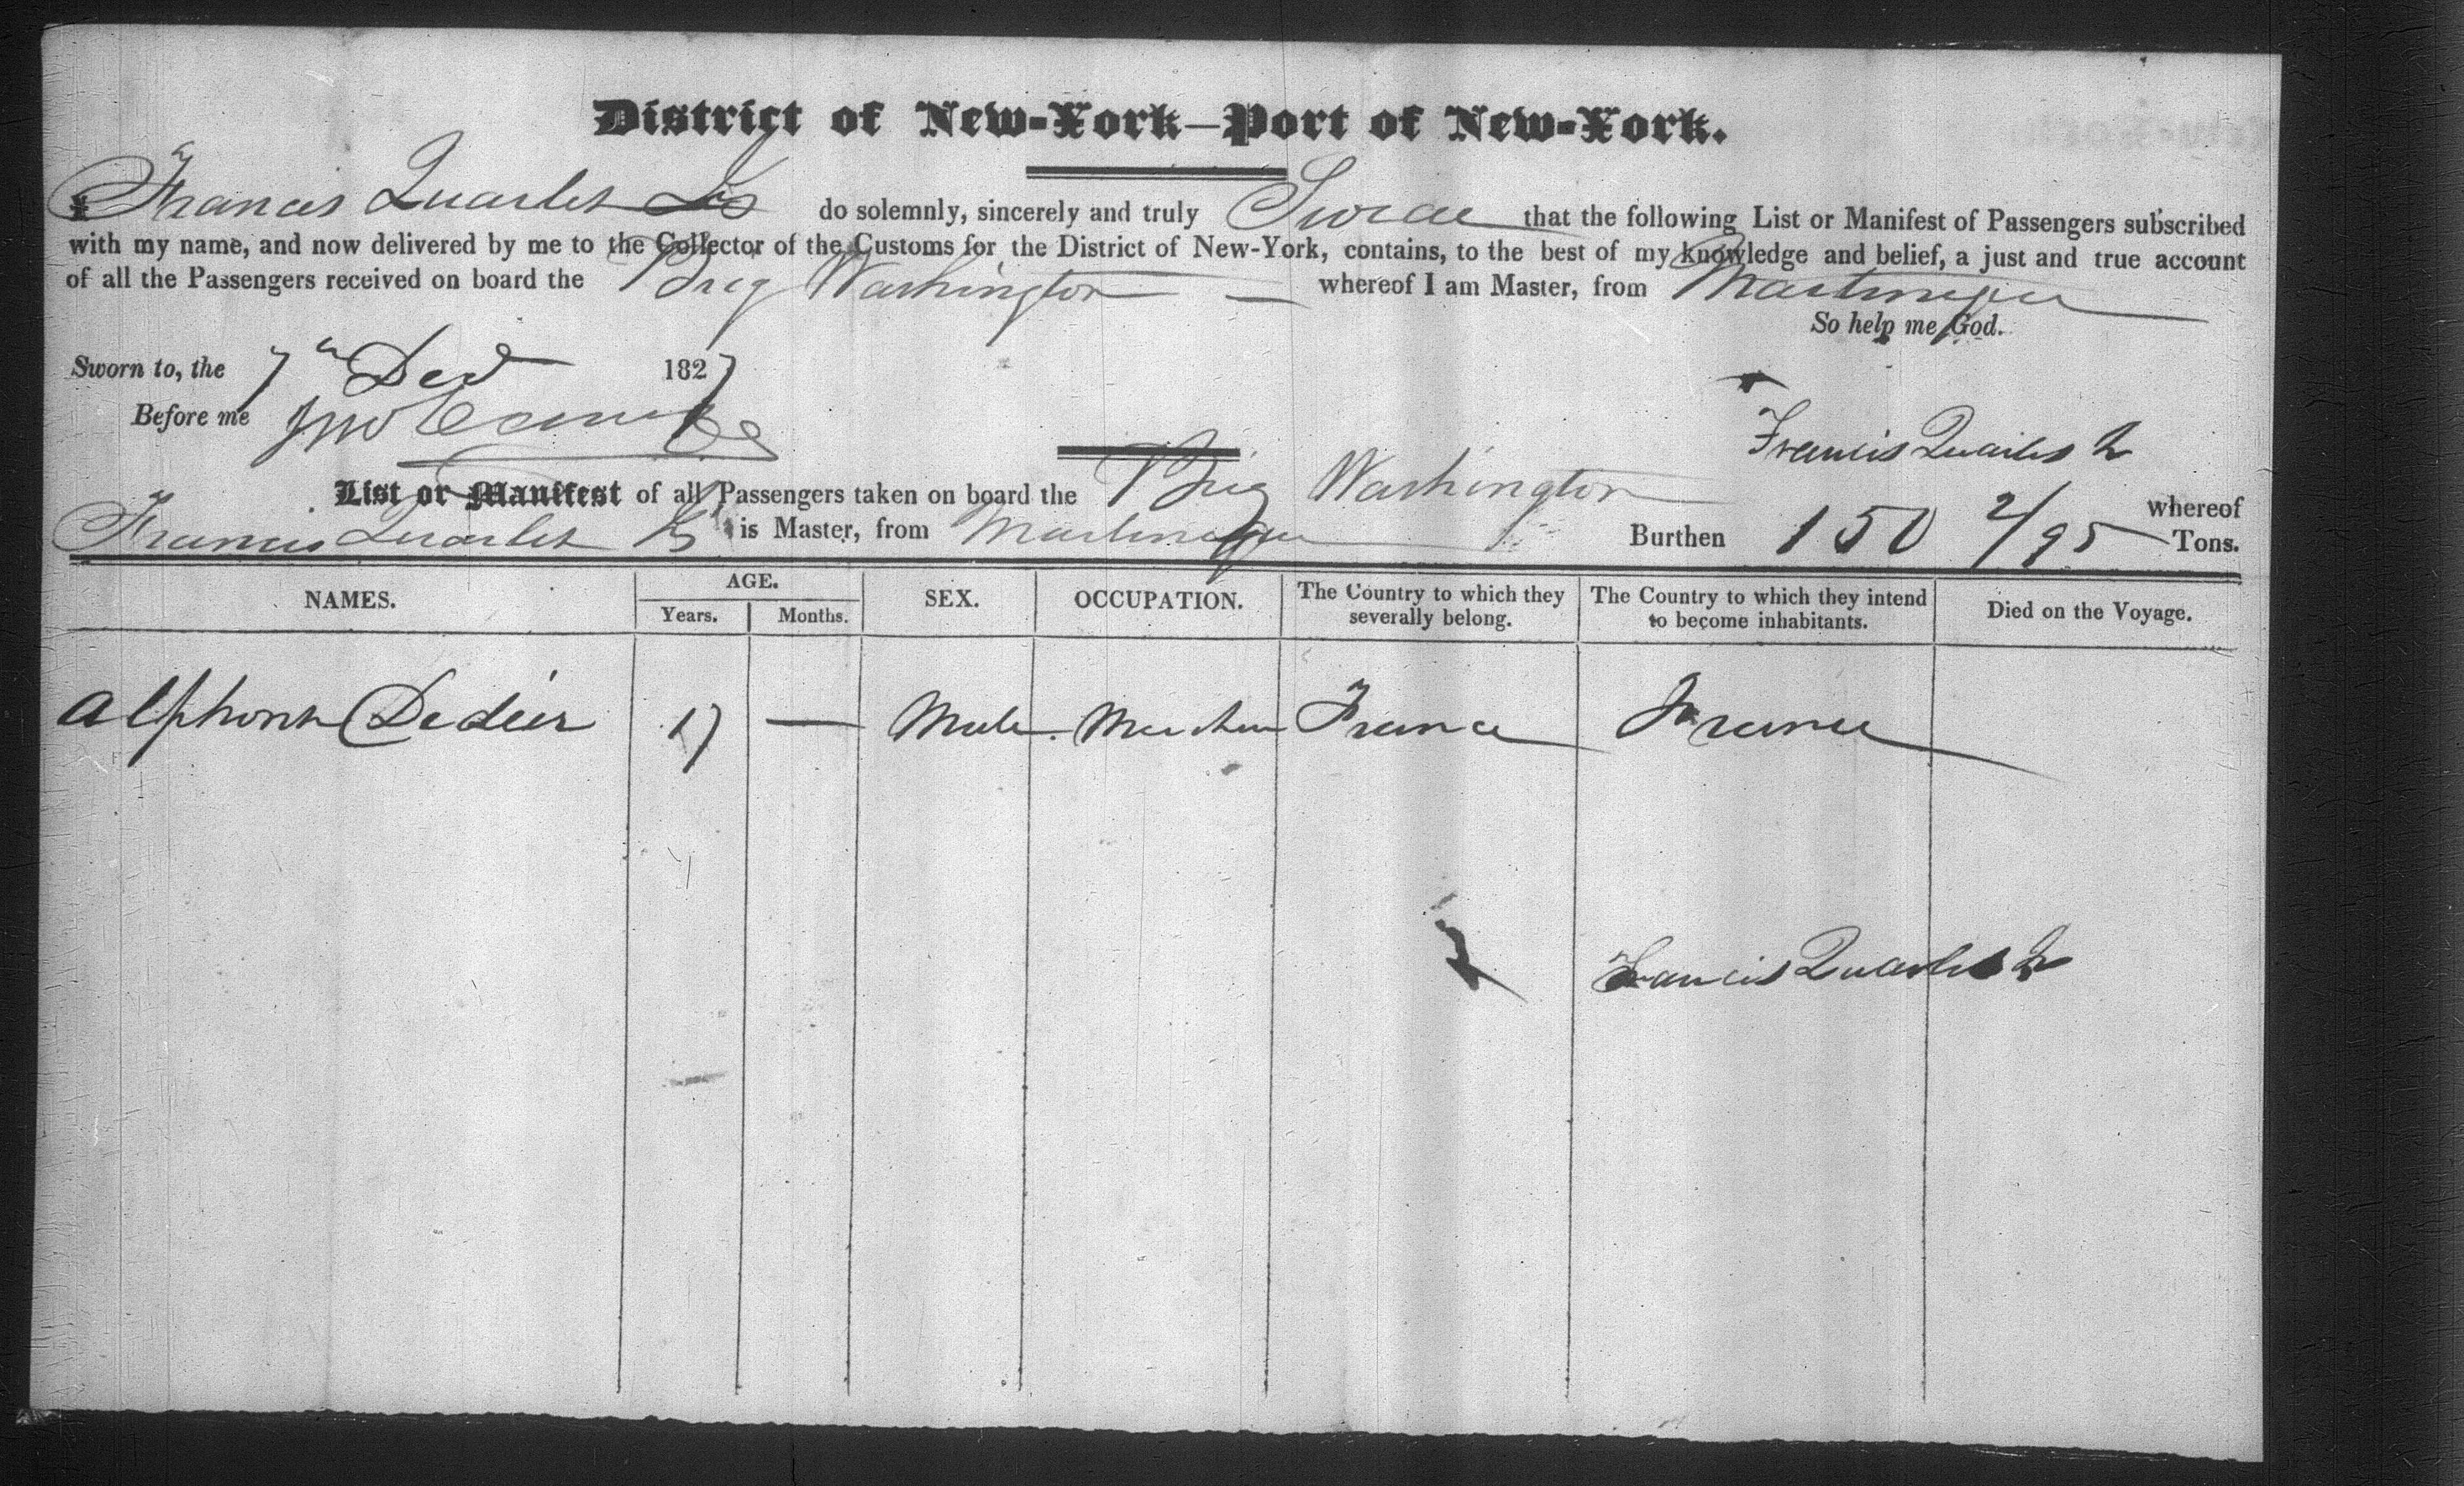 District of New-York—Port of New-York.
I Francis Quarles Jr do solemnly, sincerely and truly Swear that the following List or Manifest of Passengers subscribed
with my name, and now delivered by me to the Collector of the Customs for the District of New-York, contains, to the best of my knowledge and belief, a just and true account
of all the Passengers received on board the Brig Washington whereof I am Master, from Martinique
So help me God.
Sworn to, the 7th Decr 1827
Before me
Francis Quarles Jr
List or Manifest of all Passengers taken on board the Brig Washington whereof
Francis Quarles Jr is Master, from Martinique Burthen 150 2/95 Tons.
NAMES. AGE. Years. Months. SEX. OCCUPATION. The Country to which they severally belong. The Country to which they intend to become inhabitants. Died on the Voyage.
Alphons Dedier 17 — Male Merchan France France
Francis Quarles Jr